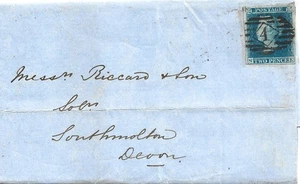 Messrs Riccard & Son
Solrs
Southmolton
Devon
4
TWO PENCE